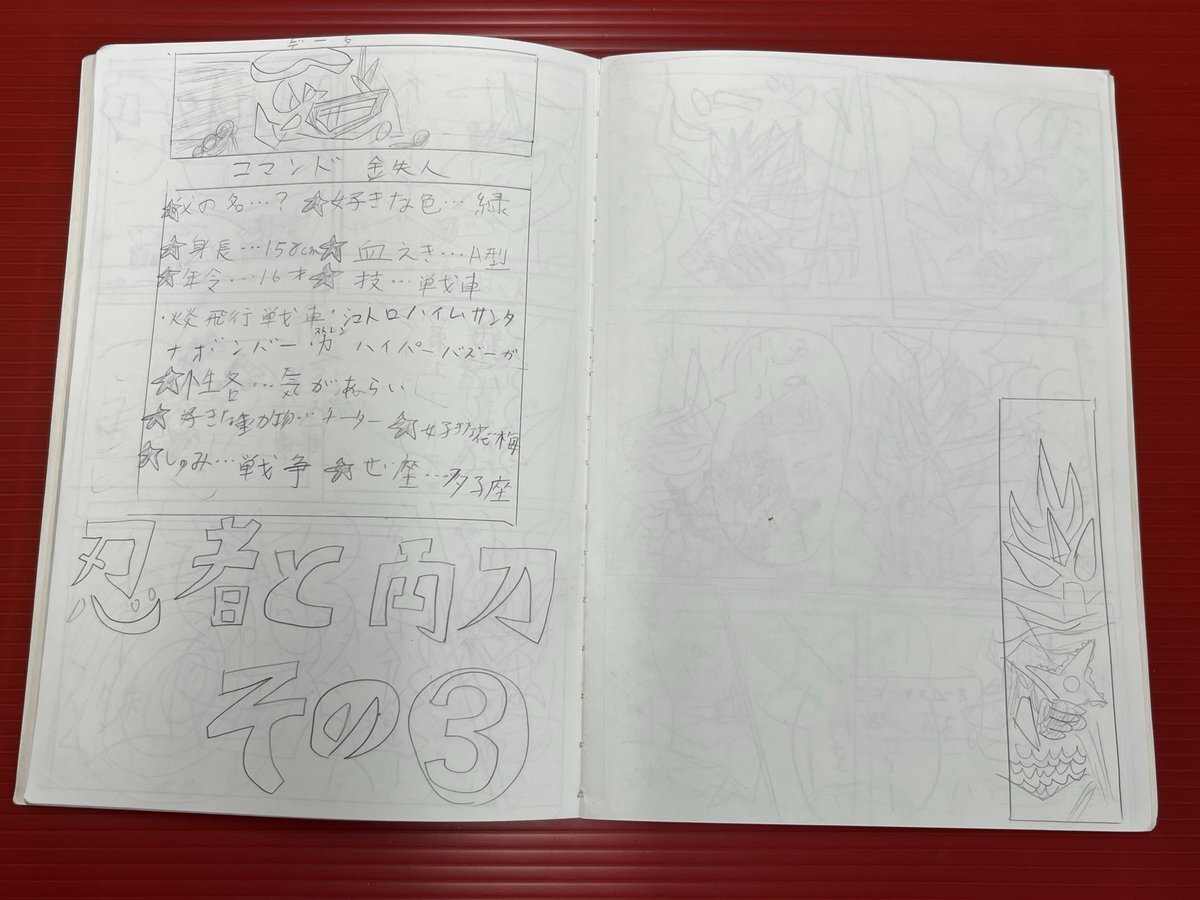 データ
コマンド 金失人
☆父の名…? ☆好きな色…緑
☆身長…158cm☆ 血えき…A型
☆年令…16才☆ 技…戦車
・火炎飛行戦車・コトロハイムサンタ
ナボンバー・ ハイパーバズーカ
☆性各…気があらい
☆好きな動物…チーター ☆好きな花梅
☆しゅみ…戦争 ☆せい座…
忍者と両刀
その③